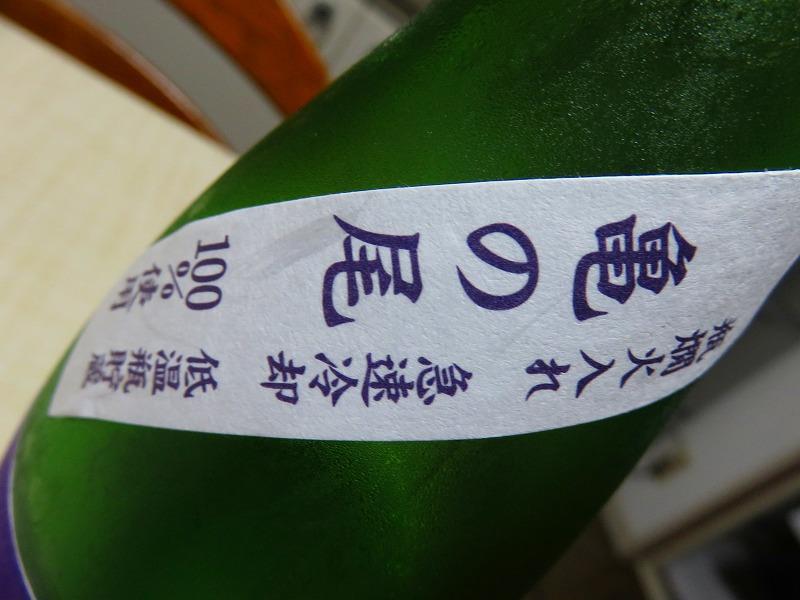 亀の尾
100%使用
瓶燗火入れ
急速冷却
低温瓶貯蔵